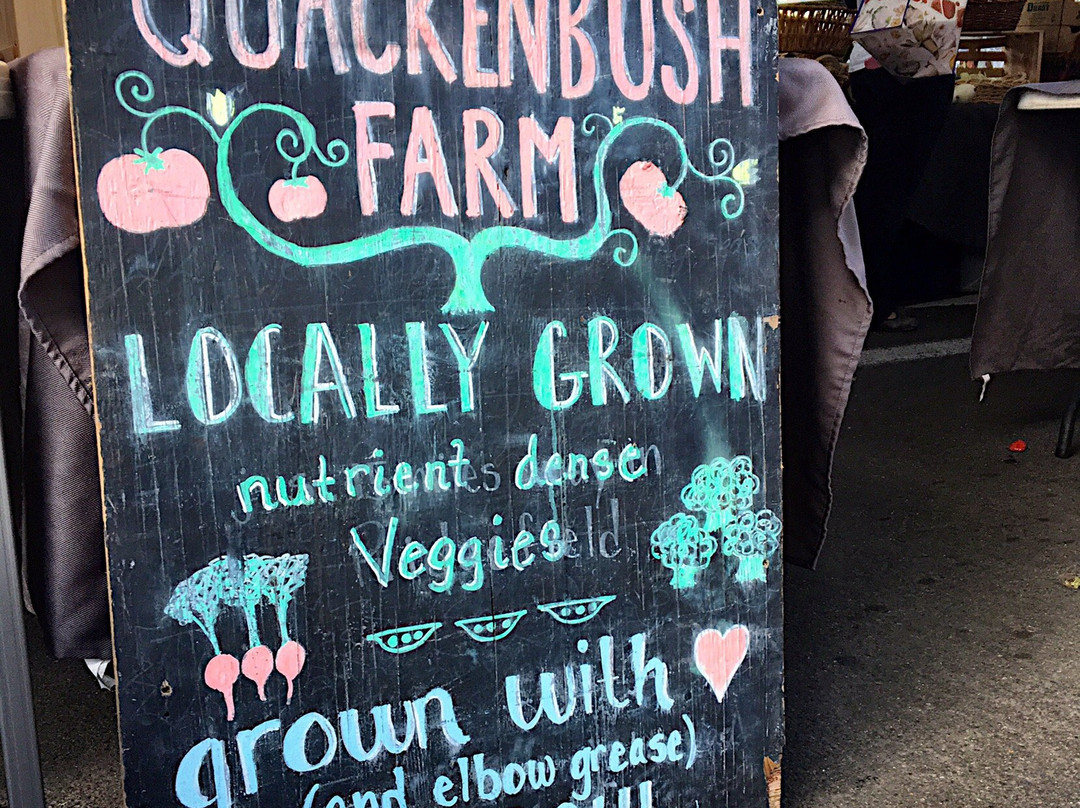 QUACKENBUSH
FARM
LOCALLY GROWN
nutrient dense
Veggies
grown with
(and elbow grease)